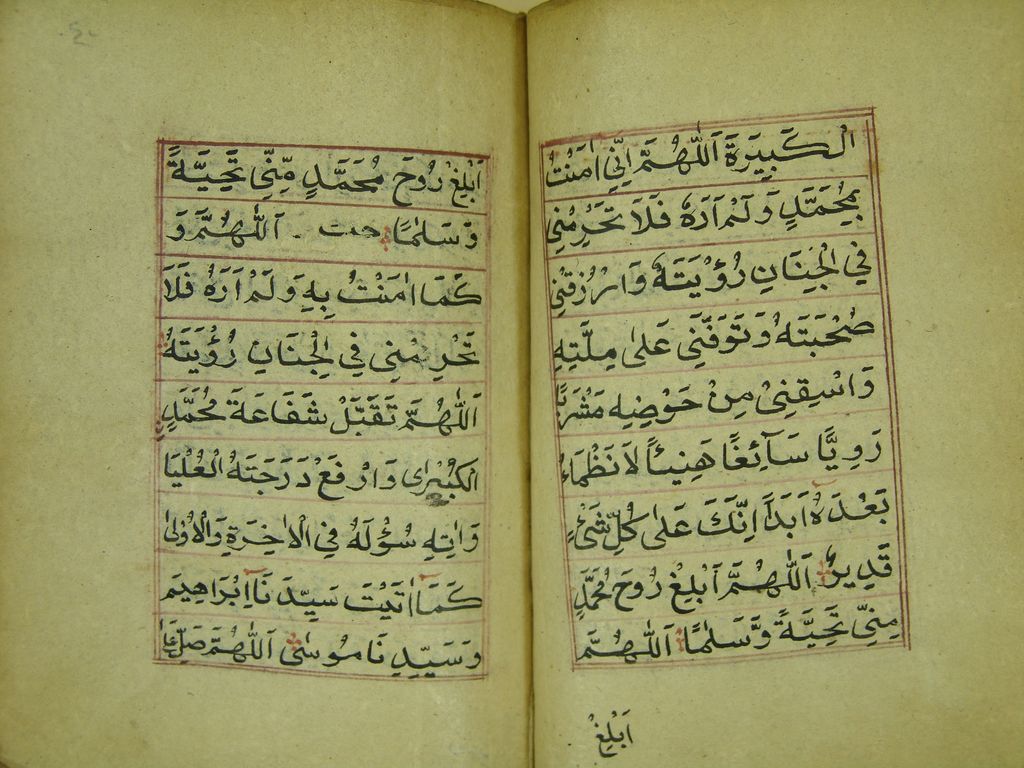 الْكَبِيرَةَ اَللّٰهُمَّ اِنِّي اٰمَنْتُ
بِمُحَمَّدٍ وَلَمْ اَرَهُ فَلَا تَحْرِمْنِي
فِي الْجِنَانِ رُؤْيَتَهُ وَارْزُقْنِي
صُحْبَتَهُ وَتَوَفَّنِي عَلٰى مِلَّتِهِ
وَاسْقِنِيْ مِنْ حَوْضِهِ مَشْرَبًا
رَوِيًّا سَآئِغًا هَنِيئًا لَا نَظْمَاءُ
بَعْدَهُ اَبَدًا اِنَّكَ عَلٰى كُلِّ شَيْءٍ
قَدِيرٌ اَللّٰهُمَّ اَبْلِغْ رُوحَ مُحَمَّدٍ
مِنِّي تَحِيَّةً وَّسَلٰمًا اَللّٰهُمَّ
اَبْلِغْ
اَبْلِغْ رُوحَ مُحَمَّدٍ مِّنِّي تَحِيَّةً
وَسَلٰمًا اَللّٰهُمَّ وَ
كَمَا اٰمَنْتُ بِهِ وَلَمْ اَرَهُ فَلَا
تَحْرِمْنِي فِي الْجِنَانِ رُؤْيَتَهُ
اَللّٰهُمَّ تَقَبَّلْ شَفَاعَةَ مُحَمَّدٍ
الْكُبْرٰى وَارْفَعْ دَرَجَتَهُ الْعُلْيَا
وَاٰتِهِ سُؤْلَهُ فِي الْاٰخِرَةِ وَالْاُوْلٰى
كَمَا اٰتَيْتَ سَيِّدَنَا اِبْرَاهِيمَ
وَسَيِّدِنَا مُوسٰى اَللّٰهُمَّ صَلِّ عَلٰى